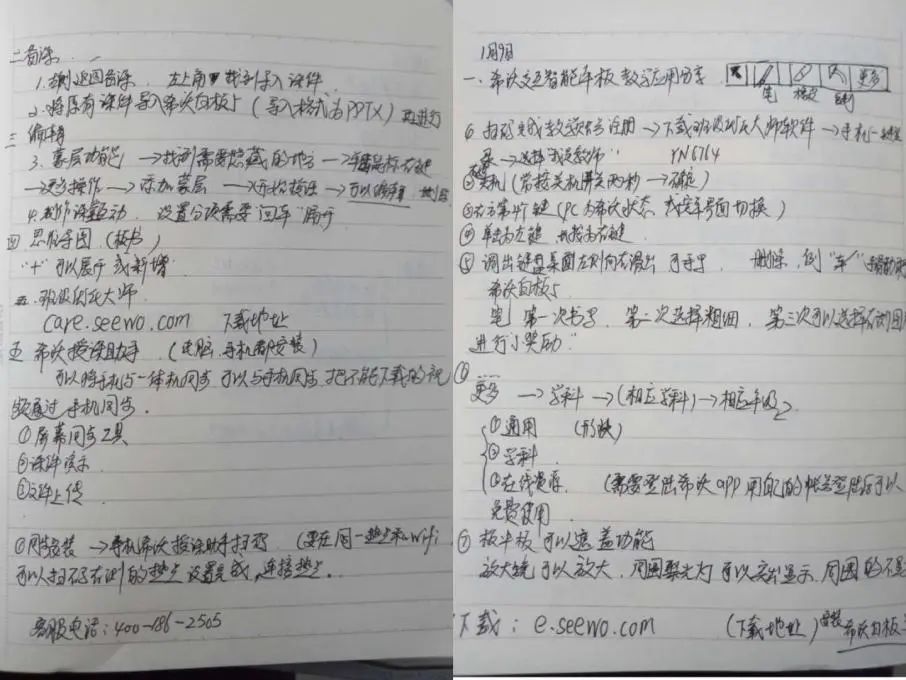 二 备课
1. 返回备课. 左上角 找到导入课件.
2. 将原有课件导入希沃白板5 (导入格式为PPTX) 再进行
三 编辑
3. 蒙层功能 → 找到需要隐藏的地方 → 鼠标右键
→ 更多操作 → 添加蒙层 → →
4. 制作课堂互动. 设置分项需要"回车"展开
四 思维导图. (板书)
"+" 可以展开 或新增
五. 班级优化大师.
care.seewo.com 下载地址
五 希沃授课助手. (电脑、手机都安装)
可以将手机与一体机同步 可以与手机同步. 把不能下载的视
频通过 手机同步.
①屏幕同步工具
②课件演示.
③文件上传.
→ 手机希沃授课助手扫码 (要在同一热点和wifi
可以扫码右侧的热点 设置完成, 连接热点.
客服电话: 400-186-2505
1月9日
一. 希沃交互智能平板 教学应用分享
笔 更多
→ 下载班级优化大师软件 → 手机一
→ 选择"我是教师" YN6764
②关机 (常按关机屏关两秒 → 确定)
③右方第4个键 (PC为希沃状态
④ 单击为左键 长按为右键.
⑤ 调出键盘桌面左到向右滑出 可手写. 删除.
希沃白板5
笔 第一次书写. 第二次选择粗细. 第三次可以选择
进行小奖励"
⑥
更多 → 学科 → (相应学科) → 相应年级
①通用 (形状)
②学科
③在线资源. (需要登陆希沃app 用自己的帐号登陆后可以
免费使用.
⑦ 板中板 可以遮盖功能
放大镜 可以放大. 周围聚光灯 可以突出显示. 周围的不
下载: e.seewo.com (下载地址) 希沃白板